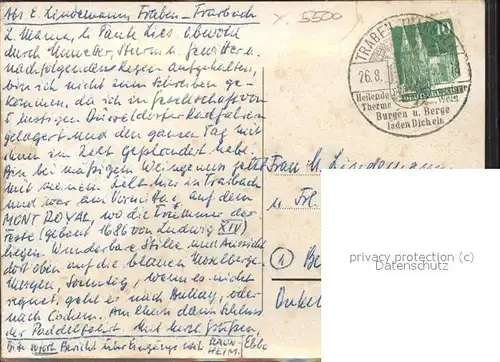 Abs. E. Lindemann, Traben-Trarbach
L. Mama, u. Tante Lies. Obwohl
durch Unwetter, Sturm u. Gewitter u.
nachfolgenden Regen aufgehalten,
bin ich nicht zum Schreiben ge-
kommen, da ich in Gesellschaft von
5 lustigen Düsseldorfer Radfahrern
gelagert und den ganzen Tag mit
ihnen im Zelt geplaudert habe.
Bin bei mäßigem Weingenuss jetzt
mit meinem Zelt hier in Trarbach
und war am Vormittag auf dem
MONT ROYAL, wo die Trümmer der
Feste (gebaut 1686 von Ludwig XIV)
liegen. Wunderbare Stille und Aussicht
dort oben auf die blauen Moselberge.
Morgen, Sonntag, wenn es nicht
regnet, geht es nach Bullay, oder
nach Cochem. Am Rhein dann Schluss
der Paddelfahrt. Mit herzl. Grüßen,
Bitte sofort Bericht über Eingänge nach BACH- Ebbo
HEIM.
x. 5500
TRABEN-TRARBACH
26.8.
10
Heilende
Therme
Wein
Burgen u. Berge
laden Dich ein
Frau M. Lindemann
u. Frl.
1
privacy protection (c)
Datenschutz